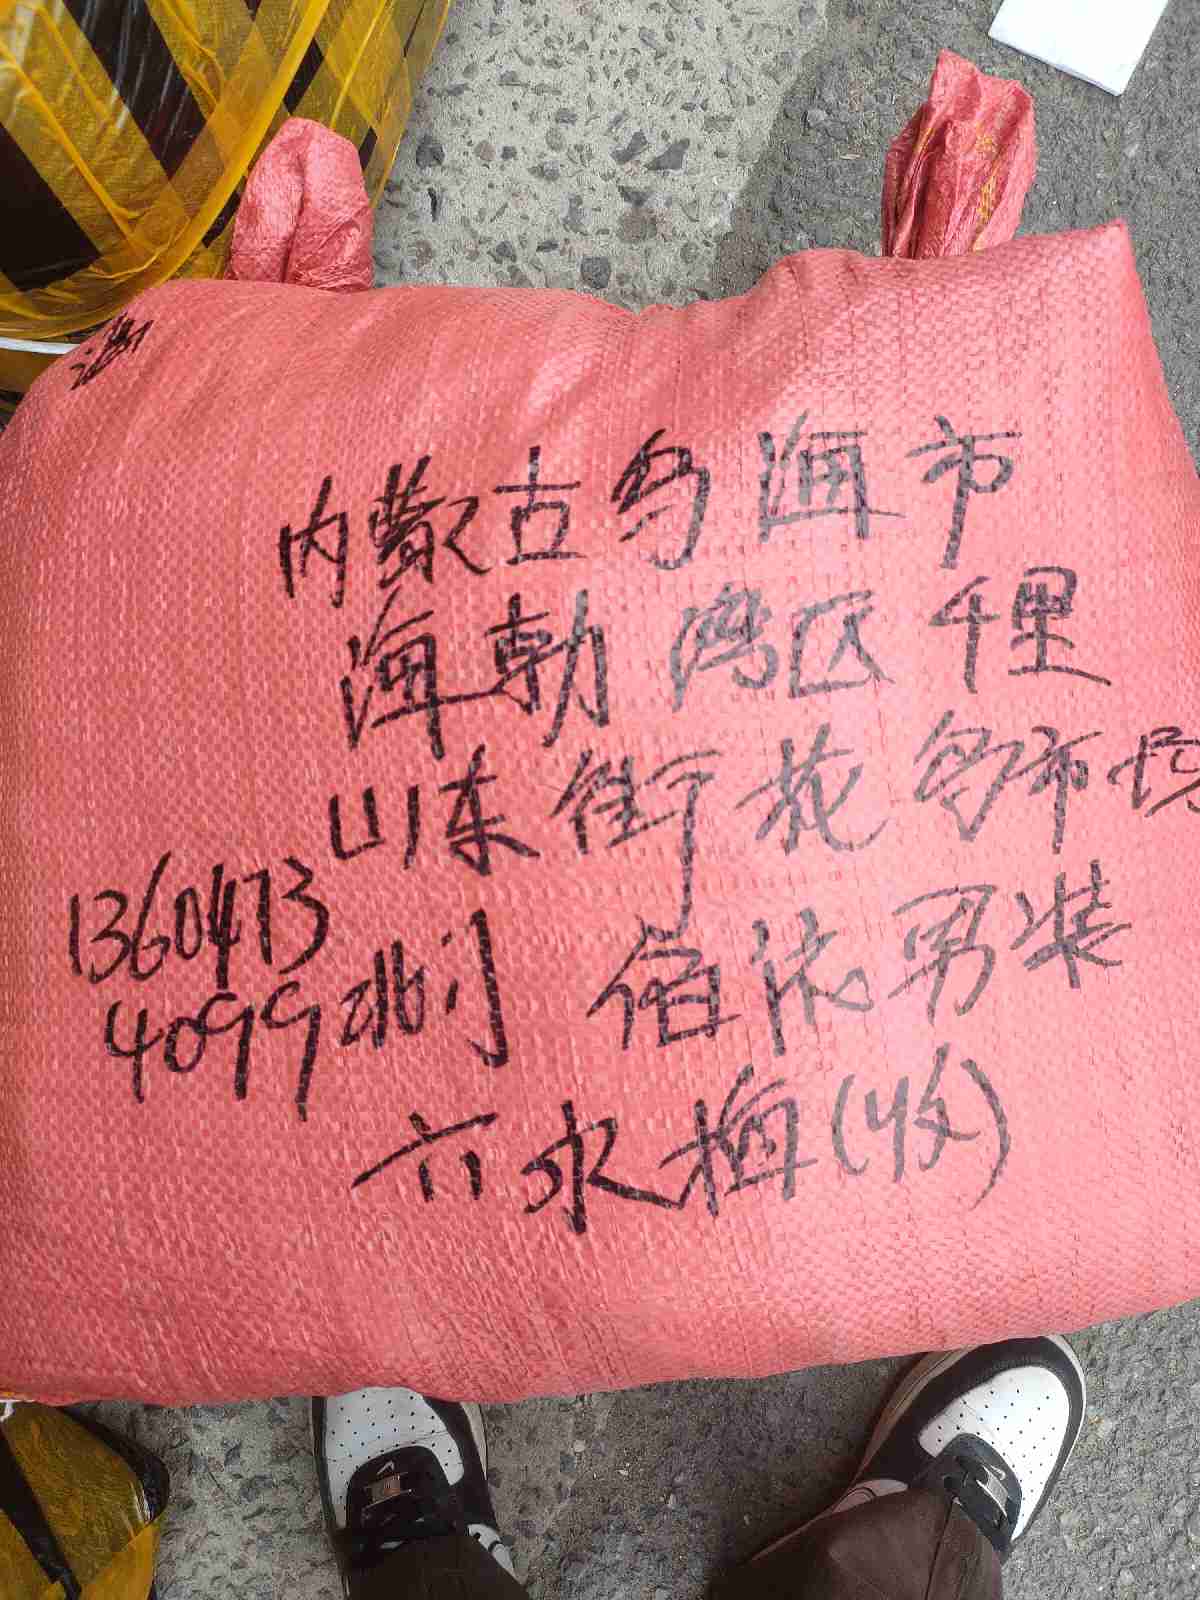 内蒙古乌海市
海勃湾区千里
山东街花鸟市场
1360473
4099北门 伯依男装
六永梅(收)